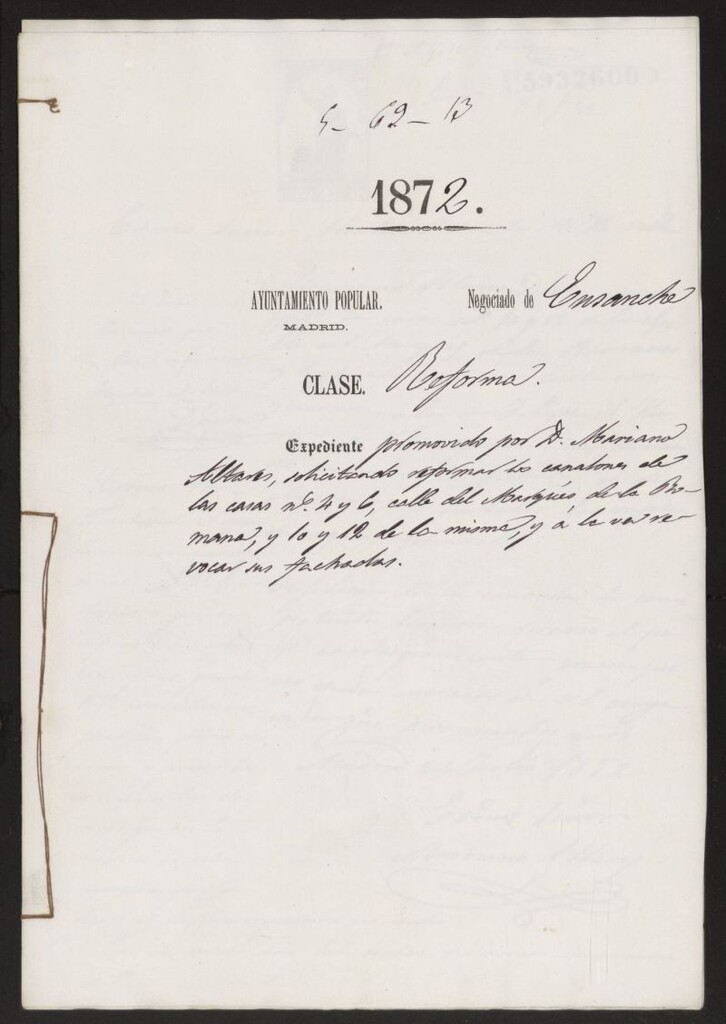 5-62-13
1872.
AYUNTAMIENTO POPULAR. Negociado de Ensanche
MADRID.
CLASE. Reforma.
Expediente promovido por D. Mariano
solicitando reformar los canalones de
las casas nº. 4 y 6, calle del Marqués de la Ro-
mana, y 10 y 12 de la misma, y á la vez re-
vocar sus fachadas.